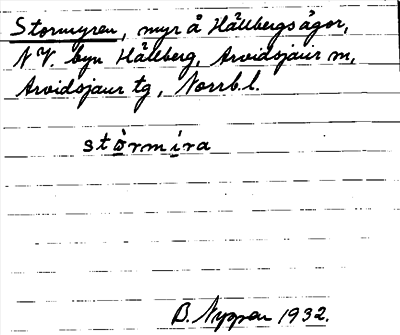 Stormyren, myr å Hällbergsägor,
N V. byn Hällberg, Arvidsjaur m,
Arvidsjaur tg, Norrb.l.
stòrmíra
B. Nyman 1932.